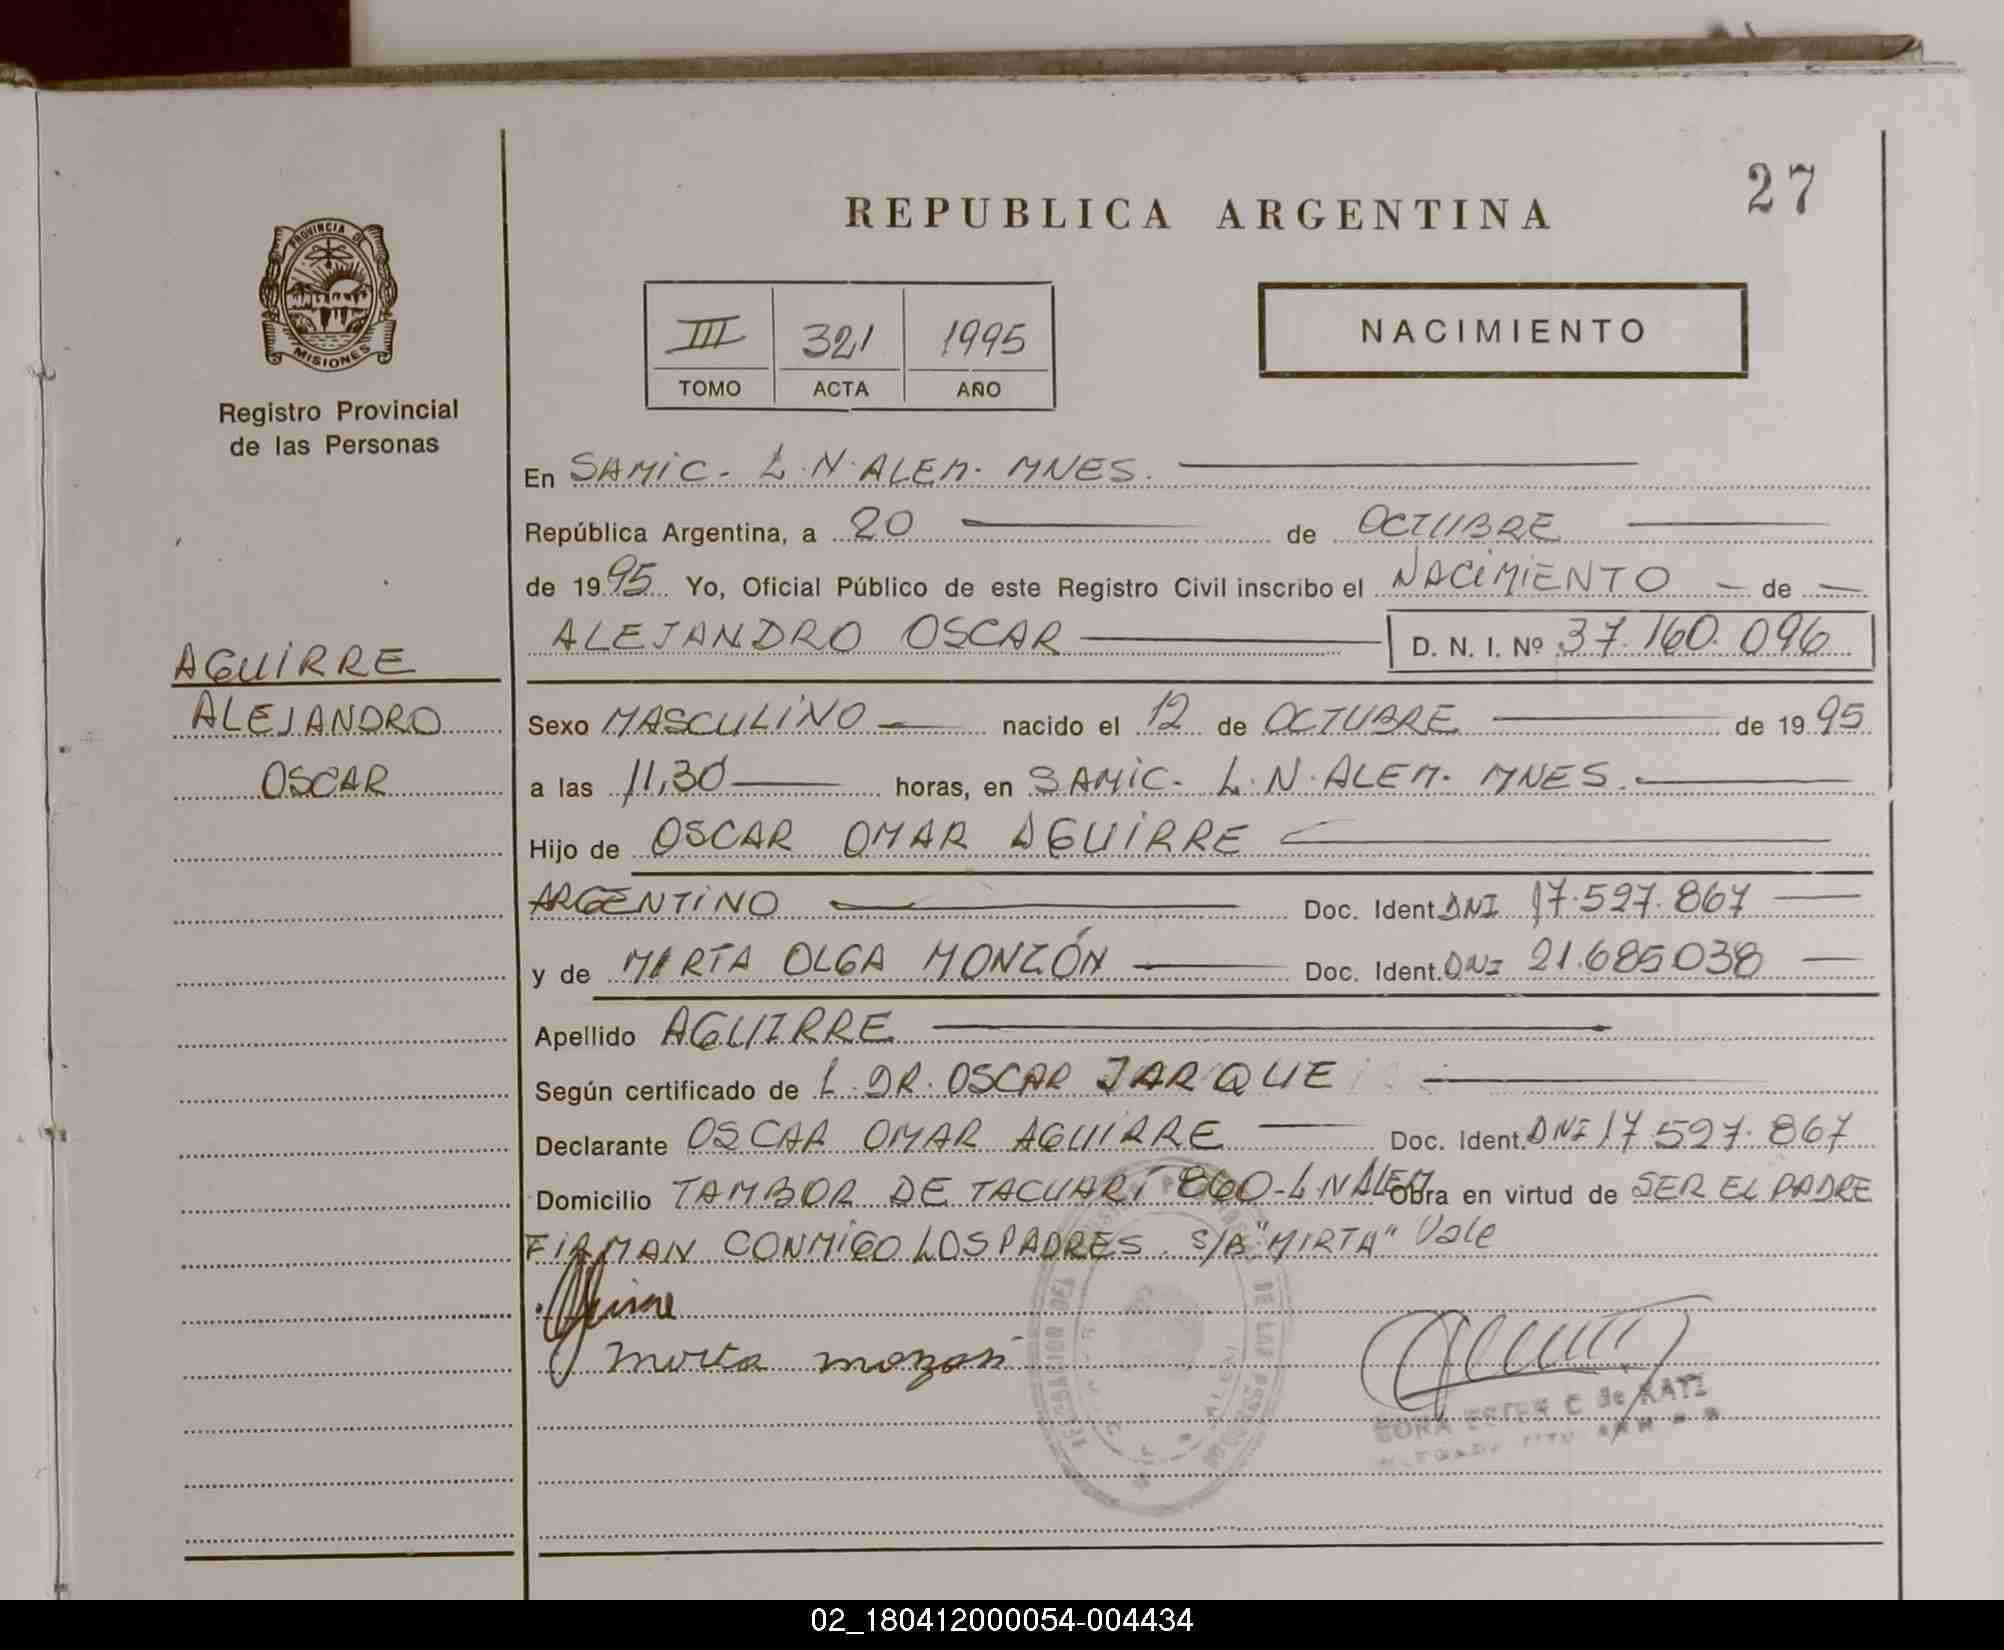 27
REPUBLICA ARGENTINA
PROVINCIA DE
MISIONES
Registro Provincial
de las Personas
III 321 1995
TOMO ACTA AÑO
NACIMIENTO
En SAMIC. L.N.ALEM. MNES.
República Argentina, a 20 de OCTUBRE
de 1995 Yo, Oficial Público de este Registro Civil inscribo el NACIMIENTO de
ALEJANDRO OSCAR D. N. I. Nº 37.160.096
AGUIRRE
ALEJANDRO
OSCAR
Sexo MASCULINO nacido el 12 de OCTUBRE de 1995
a las 11,30 horas, en SAMIC. L.N.ALEM. MNES.
Hijo de OSCAR OMAR AGUIRRE
ARGENTINO Doc. Ident. DNI 17.527.867
y de MIRTA OLGA MONZÓN Doc. Ident. DNI 21.685038
Apellido AGUIRRE
Según certificado de L. DR. OSCAR JARQUE
Declarante OSCAR OMAR AGUIRRE Doc. Ident. DNI 17.527.867
Domicilio TAMBOR DE TACUARÍ 860-L N ALEM Obra en virtud de SER EL PADRE
FIRMAN CONMIGO LOS PADRES. S/B "MIRTA" Vale
Mirta monzon
de KATZ
02_180412000054-004434